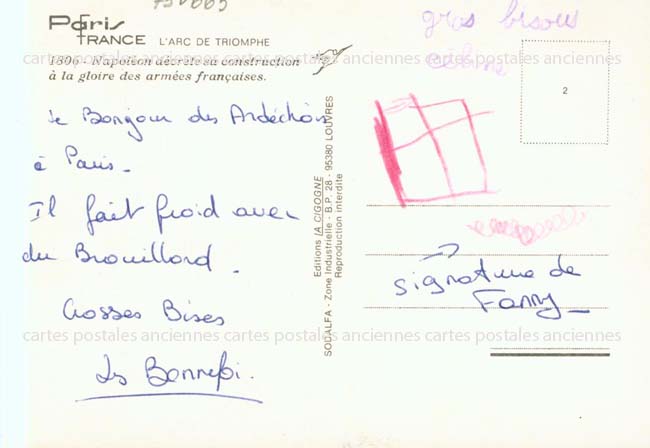 Paris
FRANCE L'ARC DE TRIOMPHE
1806 - Napoléon décrète sa construction
à la gloire des armées françaises.
gros bisous
cartes postales anciennes cartes postales anciennes cartes postales anciennes
2
Le Bonjour des Ardéchois
à Paris.
Il fait froid avec
du Brouillard.
Grosses Bises
Les Bonnefoi.
Editions LA CIGOGNE
SODALFA - Zone Industrielle - B.P. 28 - 95380 LOUVRES
Reproduction interdite
signature de
Fanny
cartes postales anciennes cartes postales anciennes cartes postales anciennes